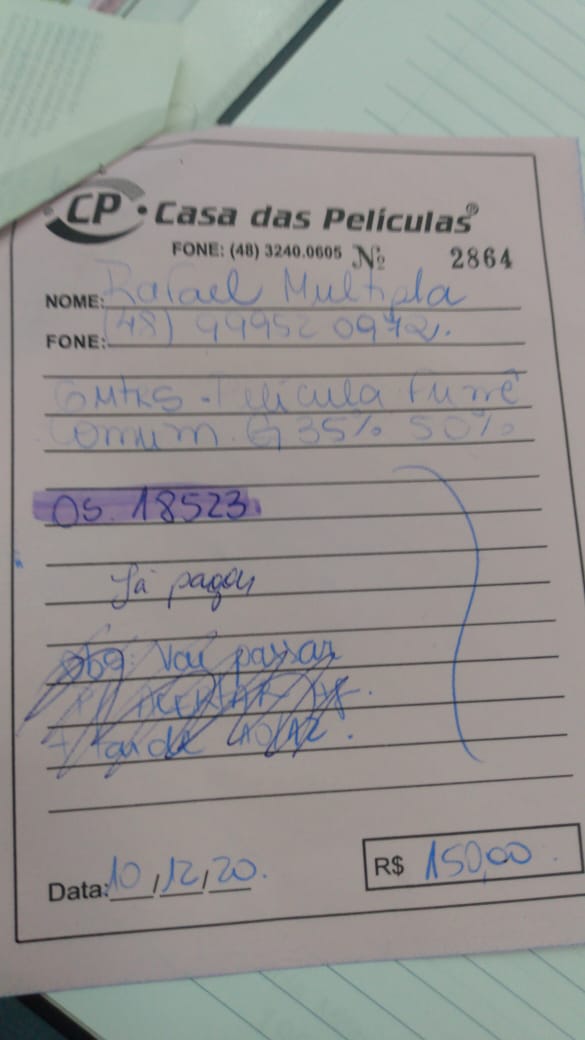 CP • Casa das Películas®
FONE: (48) 3240.0605 Nº 2864
NOME: Rafael Multipla
FONE: (48) 99952 0972.
6 Mtrs. Película Fumê
Comum. G 35% 50%
OS. 18523
Já pagou
Obs: Vai passar
P/ ACERTAR
+ tarde
Data: 10/12/20.
R$ 150,00.